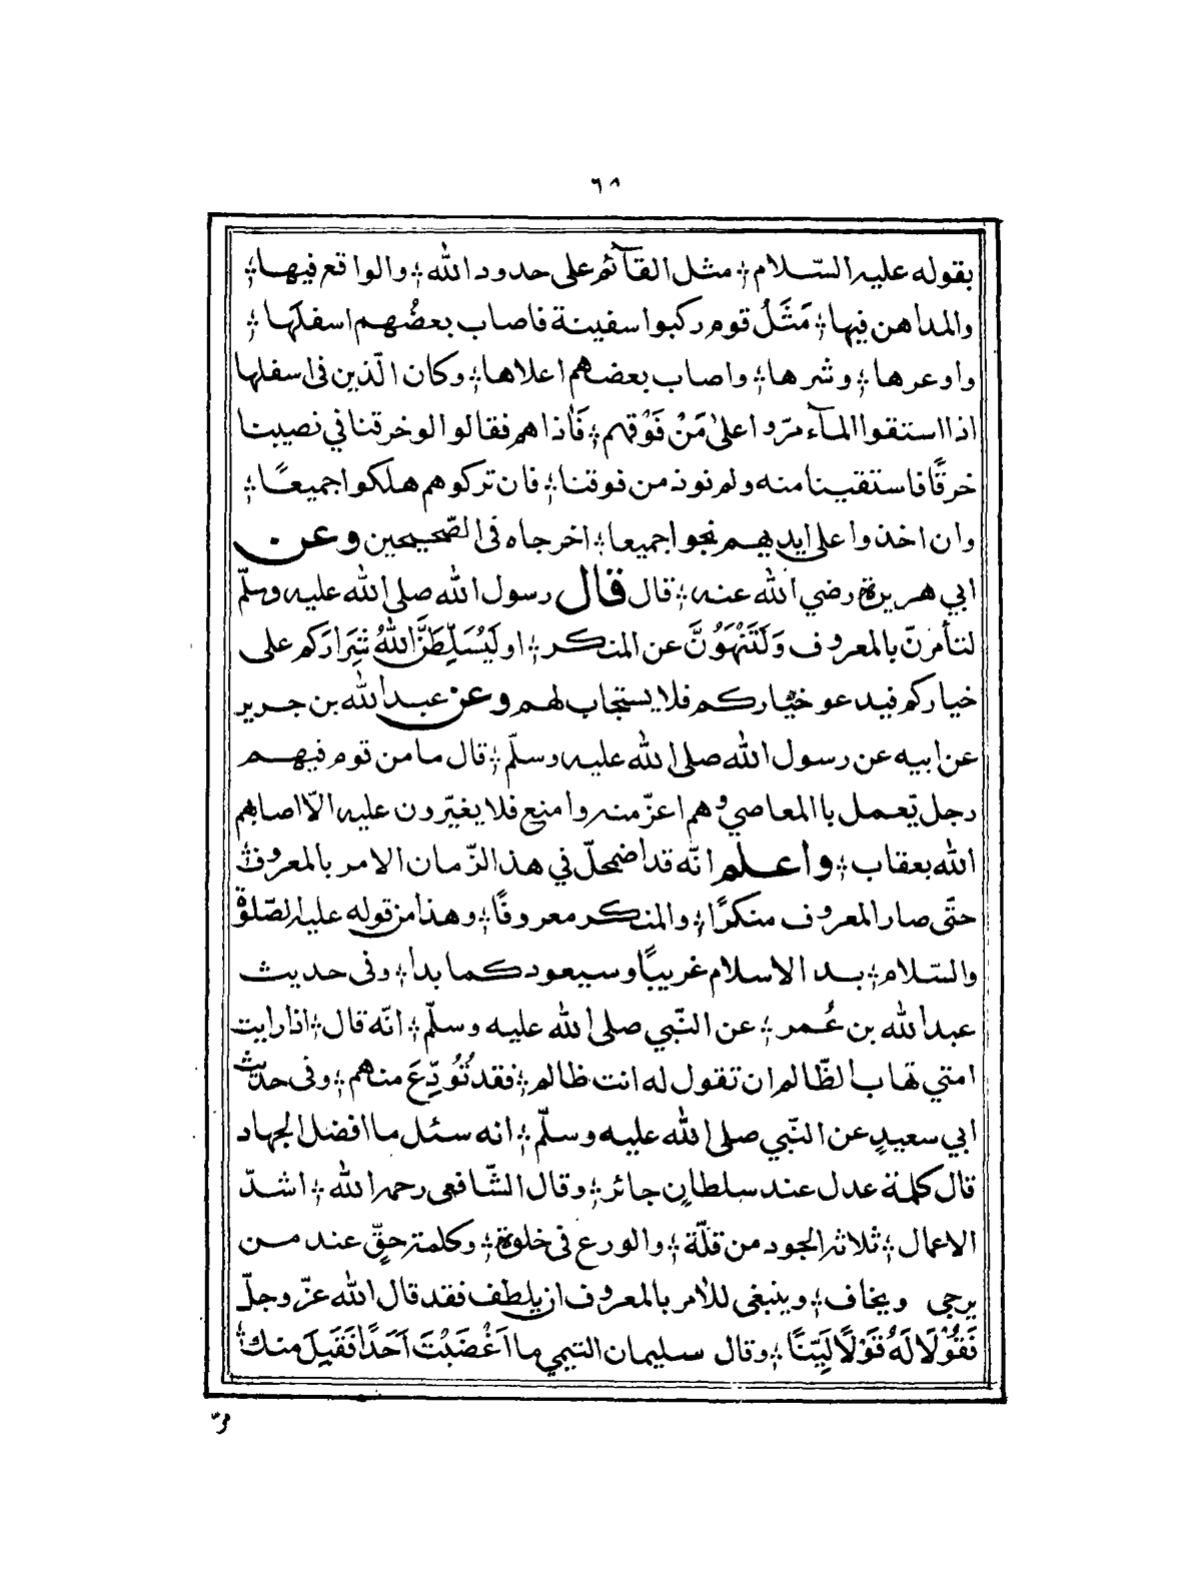 ٦٨
بقوله عليه السّلام؛ مثل القآئم على حدود الله؛ والواقع فيها؛
والمداهن فيها؛ مَثَلُ قوم ركبوا سفينة فاصاب بعضُهم اسفلَها؛
واوعرها؛ وشرها؛ واصاب بعضهم اعلاها؛ وكان الّذين فى اسفلها
اذا استقوا المآء مرّوا على مَنْ فَوْقهم؛ فَاَذاهم فقالوا لو خرقنا في نصيبنا
خرقًا فاستقينا منه ولم نوذ من فوقنا؛ فان تركوهم هلكوا جميعًا؛
وان اخذوا على ايديهم نجوا جميعا؛ اخرجاه فى الصّحيحين وعن
ابي هريرة رضي الله عنه؛ قال قال رسول الله صلى الله عليه وسلّم
لتأمرنّ بالمعروف وَلَتَنْهَوُنَّ عن المنكر؛ او لَيُسَلِّطَنَّ اللهُ شِرَارَكم على
خياركم فيدعو خياركم فلا يستجاب لهم وعن عبد الله بن جرير
عن ابيه عن رسول الله صلى الله عليه وسلّم؛ قال ما من قوم فيهم
رجل يّعمل باالمعاصي وهم اعزّ منه وامنع فلا يغيّرون عليه الّا اصابهم
الله بعقاب؛ واعلم انّه قد اضمحلّ في هذ الزّمان الامر بالمعروف
حتّى صار المعروف منكرًا؛ والمنكر معروفًا؛ وهذا من قوله عليه الصّلوة
والسّلام؛ بد الاسلام غريبًا وسيعود كما بدا؛ وفى حديث
عبد الله بن عُمر؛ عن النّبي صلى الله عليه وسلّم؛ انّه قال؛ اذا رايت
امتي تهاب الظّالم ان تقول له انت ظالم؛ فقد تُوُدِّعَ منهم؛ وفى حديث
ابي سعيدٍ عن النّبي صلى الله عليه وسلّم؛ انه سئل ما افضل الجهاد
قال كلمة عدل عند سلطانٍ جائر؛ وقال الشّافعى رحمه الله؛ اشدّ
الاعمال؛ ثلاثة الجود من قلّة؛ والورع فى خلوة؛ وكلمة حقٍّ عند من
يرجى ويخاف؛ وينبغى للآمر بالمعروف ان يلطف فقد قال الله عزّ وجلّ
فَقُوْلَا لَهُ قَوْلًا لَّيِّنًا؛ وقال سليمان التيمي ما اَغْضَبْتَ اَحَدًا فَقَبِلَ منك؛